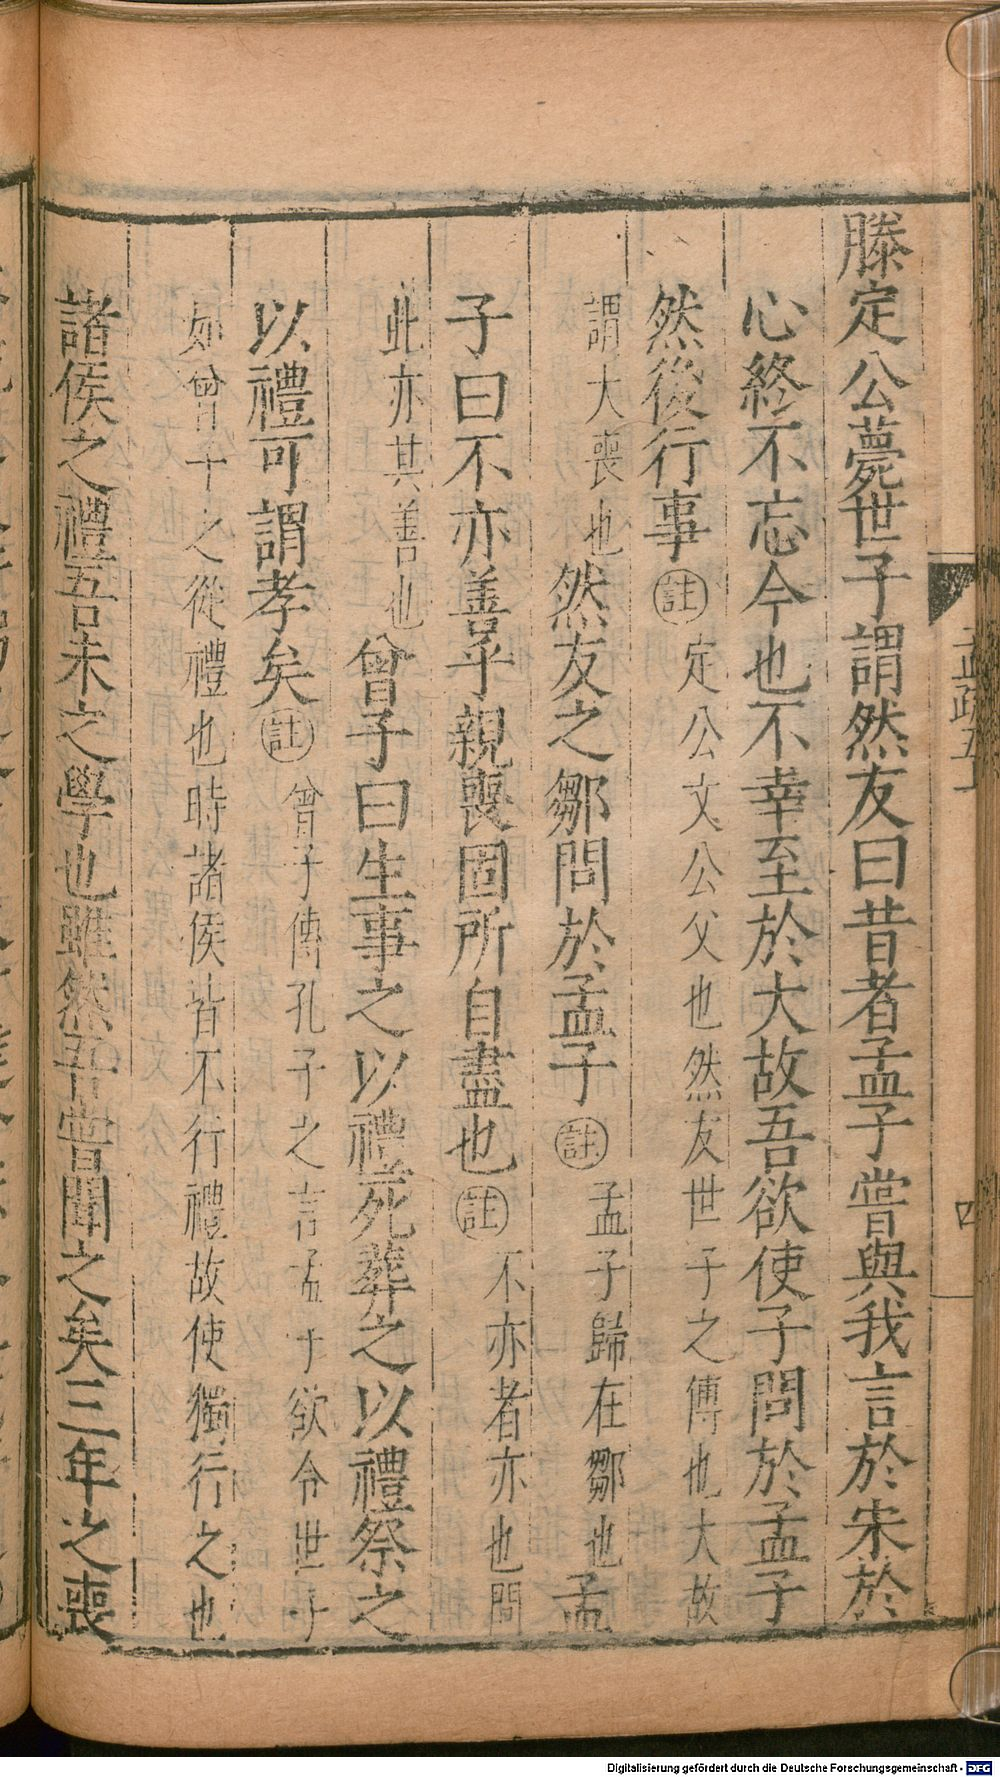 滕定公薨世子謂然友曰昔者孟子嘗與我言於宋於
心終不忘今也不幸至於大故吾欲使子問於孟子
然後行事註定公文公父也然友世子之傅也大故
謂大喪也然友之鄒問於孟子註孟子歸在鄒也孟
子曰不亦善乎親喪固所自盡也註不亦者亦也問
此亦其善也曾子曰生事之以禮死葬之以禮祭之
以禮可謂孝矣註曾子傳孔子之言孟子欲令世子
如曾子之從禮也時諸侯皆不行禮故使獨行之也
諸侯之禮吾未之學也雖然吾嘗聞之矣三年之喪
孟疏五上
四
Digitalisierung gefördert durch die Deutsche Forschungsgemeinschaft - DFG